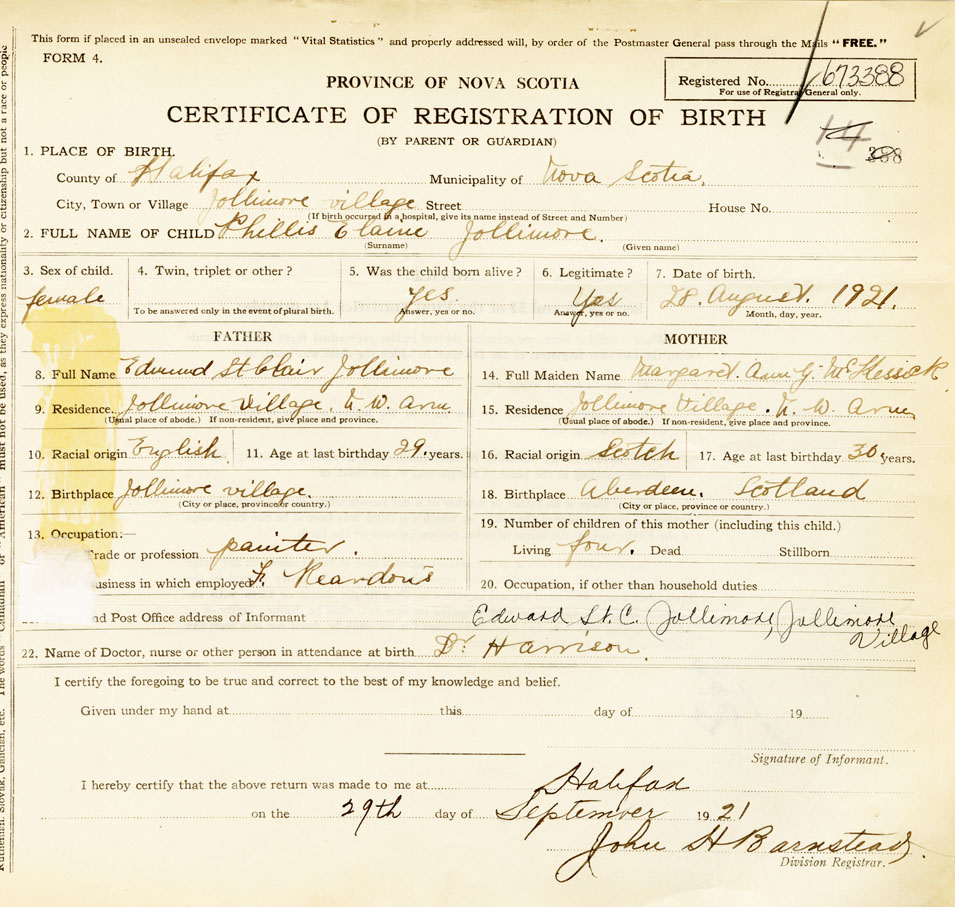 This form if placed in an unsealed envelope marked "Vital Statistics" and properly addressed will, by order of the Postmaster General pass through the Mails "FREE."
FORM 4.
PROVINCE OF NOVA SCOTIA
Registered No. 673388
For use of Registrar General only.
CERTIFICATE OF REGISTRATION OF BIRTH
(BY PARENT OR GUARDIAN)
14
388
1. PLACE OF BIRTH.
County of Halifax Municipality of Nova Scotia.
City, Town or Village Jollimore village Street House No.
(If birth occurred in a hospital, give its name instead of Street and Number)
2. FULL NAME OF CHILD Phillis Elaine Jollimore.
(Surname) (Given name)
3. Sex of child. 4. Twin, triplet or other? 5. Was the child born alive? 6. Legitimate? 7. Date of birth.
female yes. Yes 28. August. 1921.
To be answered only in the event of plural birth. Answer, yes or no. Answer, yes or no. Month, day, year.
FATHER MOTHER
8. Full Name Edmund St Clair Jollimore 14. Full Maiden Name Margaret. Ann G. McKessick
9. Residence Jollimore Village, N. W. Arm 15. Residence Jollimore Village. N. W. Arm
(Usual place of abode.) If non-resident, give place and province. (Usual place of abode.) If non-resident, give place and province.
10. Racial origin English 11. Age at last birthday 29. years. 16. Racial origin Scotch 17. Age at last birthday 30 years.
12. Birthplace Jollimore village. 18. Birthplace Aberdeen. Scotland
(City or place, province or country.) (City or place, province or country.)
13. Occupation:— 19. Number of children of this mother (including this child.)
rade or profession painter. Living four. Dead Stillborn
usiness in which employed Reardon's 20. Occupation, if other than household duties
nd Post Office address of Informant Edward St. C. Jollimore, Jollimore Village
22. Name of Doctor, nurse or other person in attendance at birth Dr Harrison
I certify the foregoing to be true and correct to the best of my knowledge and belief.
Given under my hand at this day of 19
Signature of Informant.
I hereby certify that the above return was made to me at Halifax
on the 29th day of September 1921
John H Barnstead.
Division Registrar.
must not be used, as they express nationality or citizenship but not a race or people
The words "Canadian" or "American"
Ruthenian, Slovak, Galician, etc.